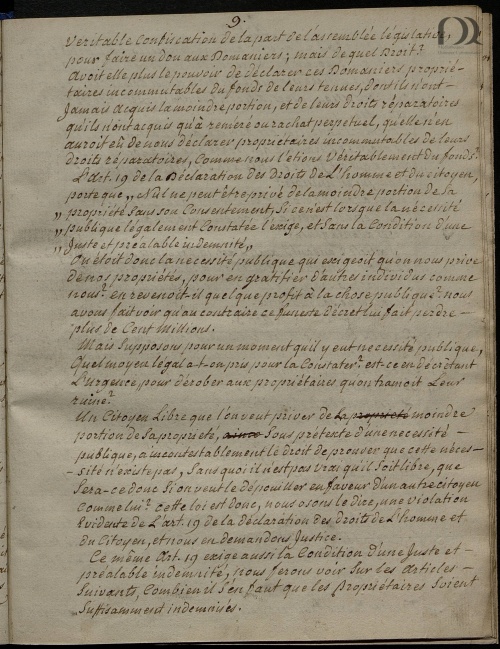 9.
veritable Confiscation de la part de l'assemblée législative,
pour faire un don aux Domaniers; mais de quel Droit?
avoit elle plus le pouvoir de déclarer ces Domaniers proprié-
taires incommutables du fonds de leurs tenues, dont ils n'ont-
Jamais acquis la moindre portion, et de leurs droits réparatoires
qu'ils n'ont acquis qu'à reméré ou rachat perpetuel, qu'elle n'en
auroit eû de nous déclarer propriétaires incommutables de leurs
droits réparatoires, Comme nous l'etions Véritablement du fonds?
L'art. 19 de la Déclaration des Droits de L'homme et du citoyen,
porte que,, Nul ne peut être privé de la moindre portion de Sa
,, propriété Sans son Consentement, Si ce n'est lorsque la nécessité
,, publique légalement Constatée l'éxige, et Sans la Condition d'une
,, Juste et préalable indemnité,,
Ou étoit donc la necessité publique qui exigeoit qu'on nous prive
de nos propriétés, pour en gratifier d'autres individus comme
nous? en revenoit-il quelque profit à la chose publique? nous
avons fait voir qu'au contraire ce funeste décret lui fait perdre-
plus de Cent Millions.
Mais Supposons pour un moment qu'il y eut necessité publique,
Quel moyen légal a-t-on pris pour la Constater? est-ce en décrétant
L'urgence, pour dérober aux propriétaires qu'on tramoit Leur
ruine?
Un Citoyen Libre que l'on veut priver de la propriété moindre
portion de Sa propriété, Sous prétexte d'une necessité -
publique, a incontestablement le droit de prouver que cette néces-
-sité n'existe pas, Sans quoi il n'est pas vrai qu'il Soit libre, que
Sera-ce donc Si on veut le dépouiller en faveur d'un autre citoyen
comme lui? cette loi est donc, nous osons le dire, une violation
Evidente de L'art. 19 de la déclaration des Droits de L'homme et
du Citoyen, et nous en demandons Justice.
Ce même Art. 19 exige aussi la Condition d'une Juste et-
préalable indemnité, nous ferons voir Sur les articles-
Suivants, Combien il s'en faut que les Propriétaires Soient
Suffisamment indemnisés.